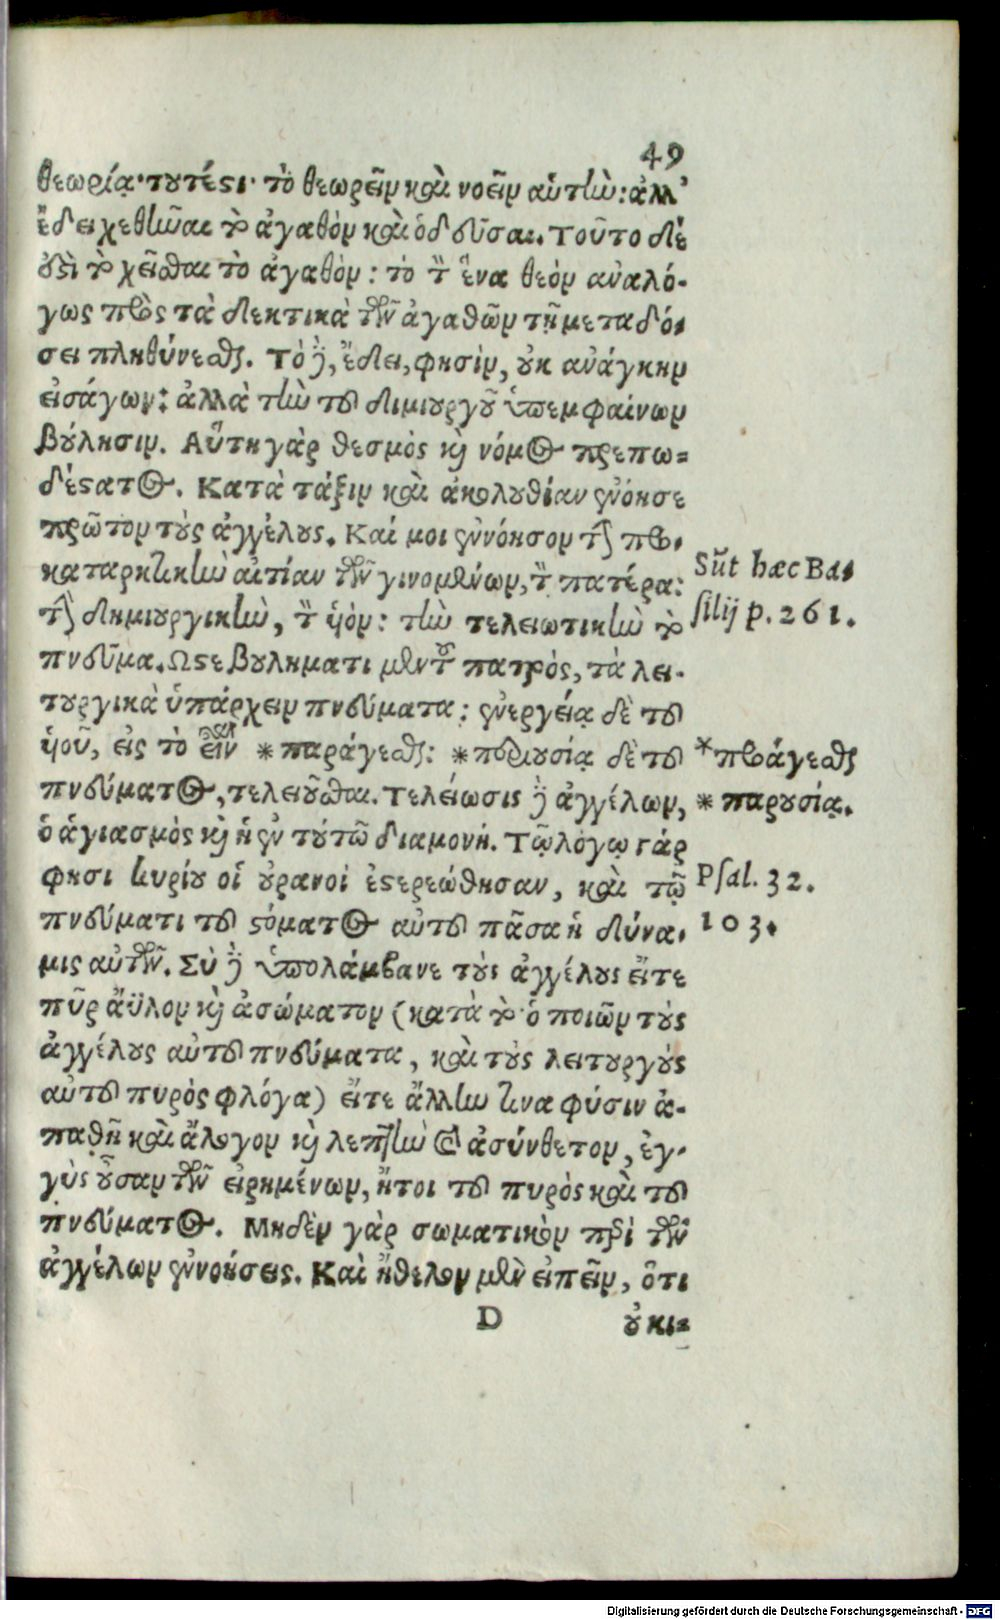 49
θεωρίᾳ· τουτέστι· τὸ θεωρεῖν καὶ νοεῖν αὑτήν: ἀλλ'
ἔδει χεθῆναι τὸ ἀγαθὸν καὶ ὁδεῦσαι. Τοῦτο δέ
ἐστι τὸ χεῖσθαι τὸ ἀγαθόν: τὸ τὸν ἕνα θεὸν ἀναλό-
γως πρὸς τὰ δεκτικὰ τῶν ἀγαθῶν τῇ μεταδό-
σει πληθύνεσθαι. Τὸ δὲ, ἔδει, φησὶν, οὐκ ἀνάγκην
εἰσάγων: ἀλλὰ τὴν τοῦ διμιουργοῦ ὑπεμφαίνων
βούλησιν. Αὕτη γὰρ θεσμὸς καὶ νόμος πρεπω=
δέστατος. Κατὰ τάξιν καὶ ἀκολουθίαν ἐνόησε
πρῶτον τοὺς ἀγγέλους. Καί μοι ἐννόησον τὴν προ-
καταρκτικὴν αἰτίαν τῶν γινομένων, τὸν πατέρα:
τὴν δημιουργικὴν, τὸν υἱόν: τὴν τελειωτικὴν τὸ
πνεῦμα. Ὥστε βουλήματι μὲν τοῦ πατρὸς, τὰ λει-
τουργικὰ ὑπάρχειν πνεύματα: ἐνεργείᾳ δὲ τοῦ
υἱοῦ, εἰς τὸ εἶναι *παράγεσθαι: *περιουσίᾳ δὲ τοῦ
πνεύματος, τελειοῦσθαι. Τελείωσις δὲ ἀγγέλων,
ὁ ἁγιασμὸς καὶ ἡ ἐν τούτῳ διαμονή. Τῷ λόγῳ γάρ
φησι κυρίου οἱ οὐρανοὶ ἐστερεώθησαν, καὶ τῷ
πνεύματι τοῦ στόματος αὐτοῦ πᾶσα ἡ δύνα-
μις αὐτῶν. Σὺ δὲ ὑπολάμβανε τοὺς ἀγγέλους εἴτε
πῦρ ἄϋλον καὶ ἀσώματον (κατὰ τὸ· ὁ ποιῶν τοὺς
ἀγγέλους αὐτοῦ πνεύματα, καὶ τοὺς λειτουργοὺς
αὐτοῦ πυρὸς φλόγα) εἴτε ἄλλην τινα φύσιν ἀ-
παθῆ καὶ ἄλογον καὶ λεπτὴν καὶ ἀσύνθετον, ἐγ-
γὺς οὖσαν τῶν εἰρημένων, ἤτοι τοῦ πυρὸς καὶ τοῦ
πνεύματος. Μηδὲν γὰρ σωματικὸν περὶ τῶν
ἀγγέλων ἐννοήσεις. Καὶ ἤθελον μὲν εἰπεῖν, ὅτι
D οὐκι=
Sũt hæc Ba-
silij p. 261.
*προάγεσθαι
*παρουσίᾳ.
Psal. 32.
103.
Digitalisierung gefördert durch die Deutsche Forschungsgemeinschaft - DFG